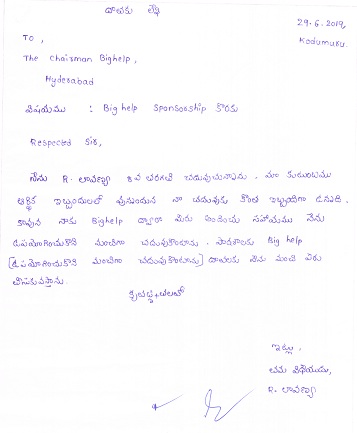 దాతకు లేఖ
29-6-2019,
Kodumuru.
To,
The Chairman Bighelp,
Hyderabad
విషయము : Big help Sponsorship కొరకు
Respected Sir,
నేను R. లావణ్య 8వ తరగతి చదువుచున్నాను. మా కుటుంబము
ఆర్థిక ఇబ్బందులలో వున్నందున నా చదువుకు కొంత ఇబ్బందిగా ఉన్నది.
కావున నాకు Bighelp ద్వారా మీరు అందించు సహాయము నేను
ఉపయోగించుకొని మంచిగా చదువుకొంటాను. Big help
[ఉపయోగించుకొని మంచిగా చదువుకొంటాను] దాతలకు నేను మంచి పేరు
తీసుకువస్తాను.
కృతజ్ఞతలతో
ఇట్లు,
తమ విధేయురాలు,
R. లావణ్య